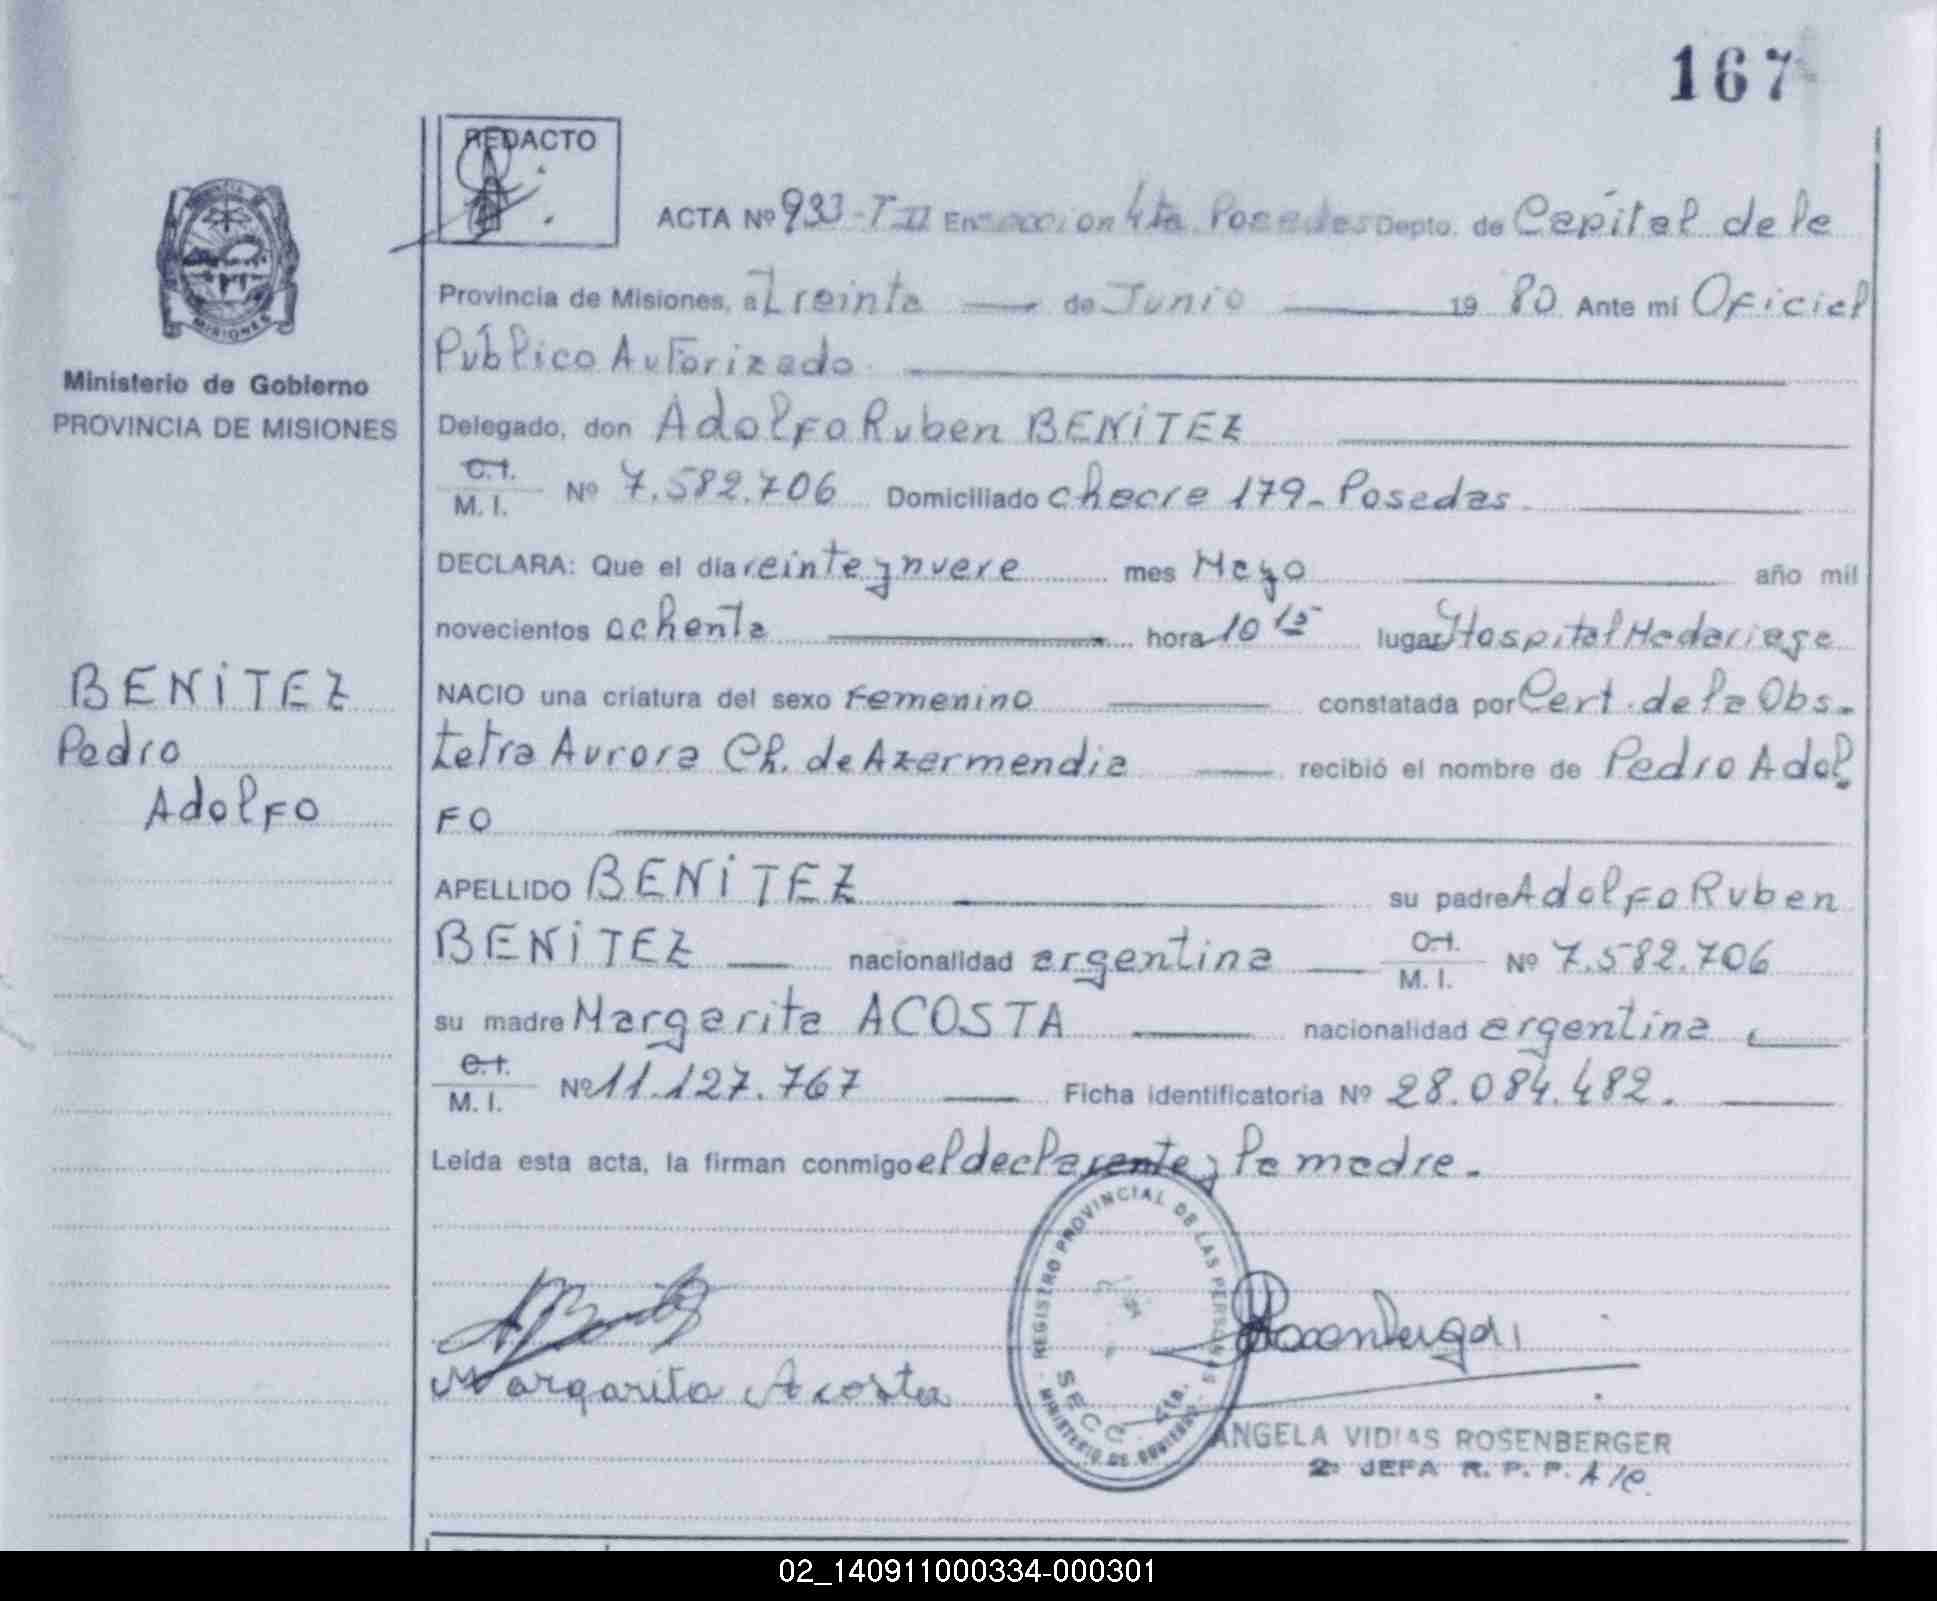 167
REDACTO
ACTA Nº 933-T II En Sección 4ta. Posadas Depto. de Capital de la
Provincia de Misiones, a Treinta de Junio 19 80 Ante mi Oficial
Público Autorizado.
MISIONES
Ministerio de Gobierno
PROVINCIA DE MISIONES
Delegado, don Adolfo Ruben BENITEZ
C.I.
M. I. Nº 7.582.706 Domiciliado chacra 179-Posadas.
DECLARA: Que el día veinte y nueve mes Mayo año mil
novecientos ochenta hora 10 15 lugar Hospital Madariaga
BENITEZ
Pedro
Adolfo
NACIO una criatura del sexo Femenino constatada por Cert. de la Obs-
tetra Aurora Ch. de Azarmendia recibió el nombre de Pedro Adol
FO
APELLIDO BENITEZ su padre Adolfo Ruben
BENITEZ nacionalidad argentina C.I. M. I. Nº 7.582.706
su madre Margarita ACOSTA nacionalidad argentina
C.I.
M. I. Nº 11.127.767 Ficha identificatoria Nº 28.084.482.
Leída esta acta, la firman conmigo el declarante y la madre.
REGISTRO PROVINCIAL DE LAS PERSONAS
SECC. 4ta.
MINISTERIO DE GOBIERNO
Margarita Acosta
ANGELA VIDIAS ROSENBERGER
2ª JEFA R. P. P. A/C.
02_140911000334-000301